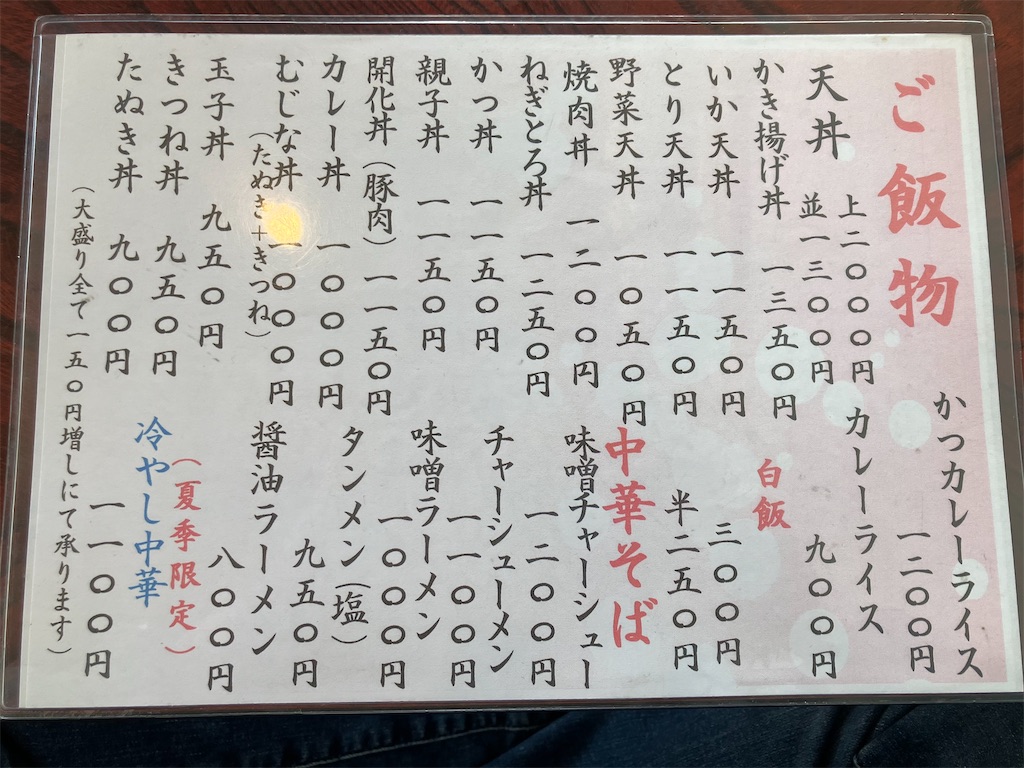 ご飯物
天丼
上二〇〇〇円
並一三〇〇円
かき揚げ丼 一三五〇円
いか天丼 一一五〇円
とり天丼 一一五〇円
野菜天丼 一〇五〇円
焼肉丼 一二〇〇円
ねぎとろ丼 一二五〇円
かつ丼 一一五〇円
親子丼 一一五〇円
開化丼（豚肉）一一五〇円
カレー丼 一〇〇〇円
むじな丼 一〇〇〇円
（たぬき＋きつね）
玉子丼 九五〇円
きつね丼 九五〇円
たぬき丼 九〇〇円
（大盛り全て一五〇円増しにて承ります）
かつカレーライス
一二〇〇円
カレーライス
九〇〇円
白飯
三〇〇円
半二五〇円
中華そば
味噌チャーシュー
一二〇〇円
チャーシューメン
一一〇〇円
味噌ラーメン
一〇〇〇円
タンメン（塩）
九五〇円
醤油ラーメン
八〇〇円
（夏季限定）
冷やし中華
一一〇〇円